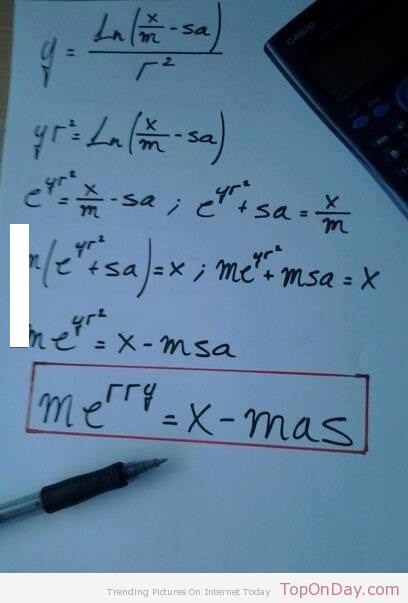 y = Ln(x/m - sa) / r²
yr² = Ln(x/m - sa)
e^yr² = x/m - sa ; e^yr² + sa = x/m
m(e^yr² + sa) = x ; me^yr² + msa = x
me^yr² = x - msa
me^rry = x - mas
CASIO
Trending Pictures On Internet Today TopOnDay.com